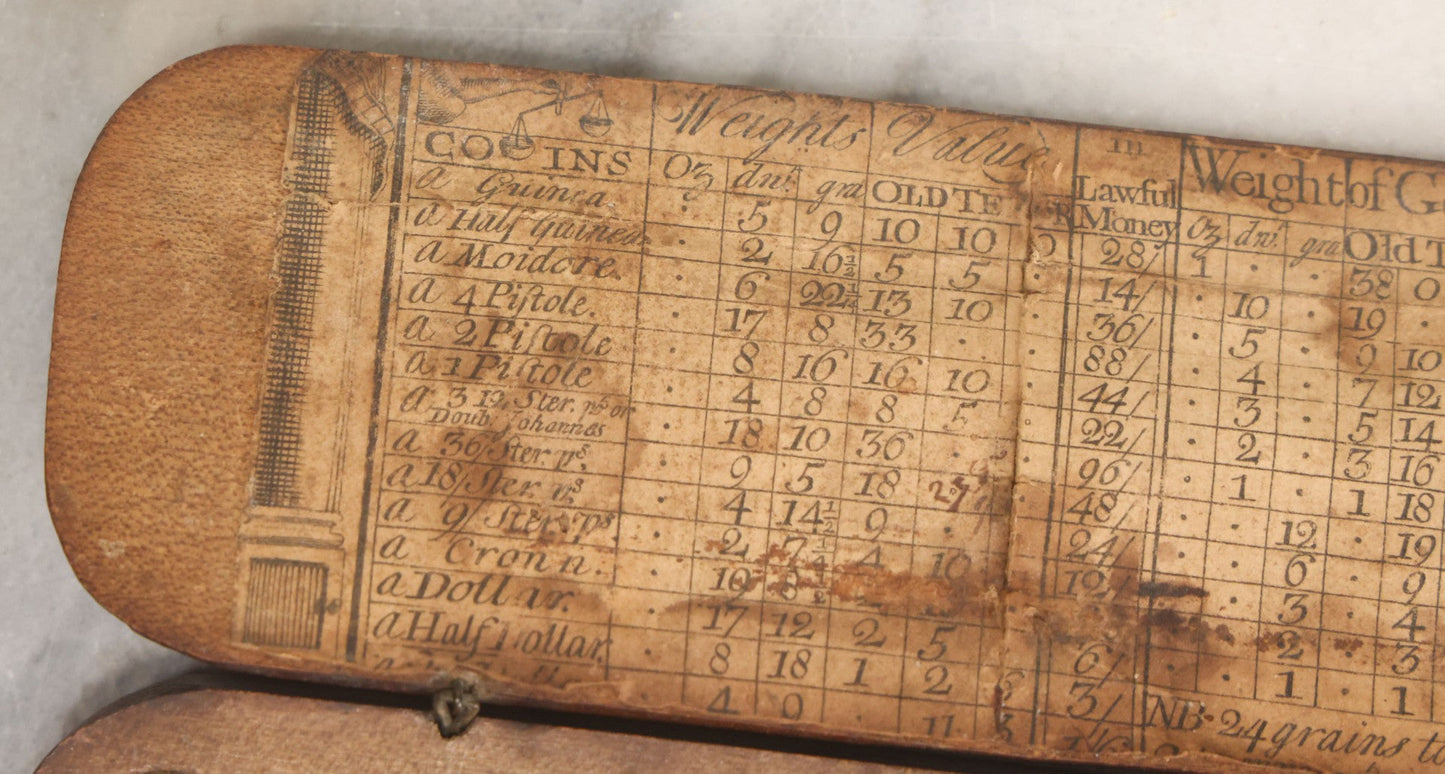 Weights Value in Weight of G
COINS Oz dwt. gra OLD TE R Lawful Money Oz dwt. gra Old T
a Guinea . 5 9 10 10 0 28/ 1 . . 38 0
a Half Guinea . 2 16½ 5 5 . 14/ . 10 . 19 .
a Moidore. . 6 22½ 13 10 . 36/ . 5 . 9 10
a 4 Piſtole. . 17 8 33 . . 88/ . 4 . 7 12
a 2 Piſtole . 8 16 16 10 . 44/ . 3 . 5 14
a 1 Piſtole . 4 8 8 5 . 22/ . 2 . 3 16
a 3 12 Ster. ps or . 18 10 36 . . 96/ . 1 . 1 18
Doub Johannes
a 36/ Ster. ps. . 9 5 18 . 48/ . . 12 . 19
a 18/ Ster. ps . 4 14½ 9 . 24/ . . 6 . 9
a 9/ Ster. ps . 2 7¼ 4 10 12/ . . 3 . 4
a Crown. . . 2 . 3
a Dollar. . 17 12 2 5 . 6/ . . 1 . 1
a Half Dollar. . 8 18 1 2 6 3/
4 9 . 11 3 1/6
NB. 24 grains to